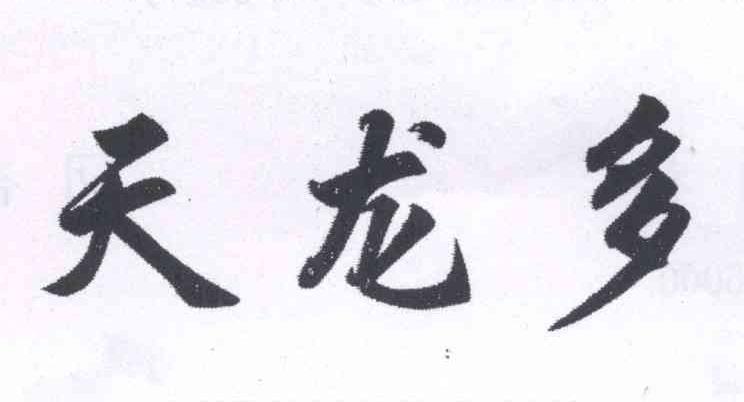 天龙多